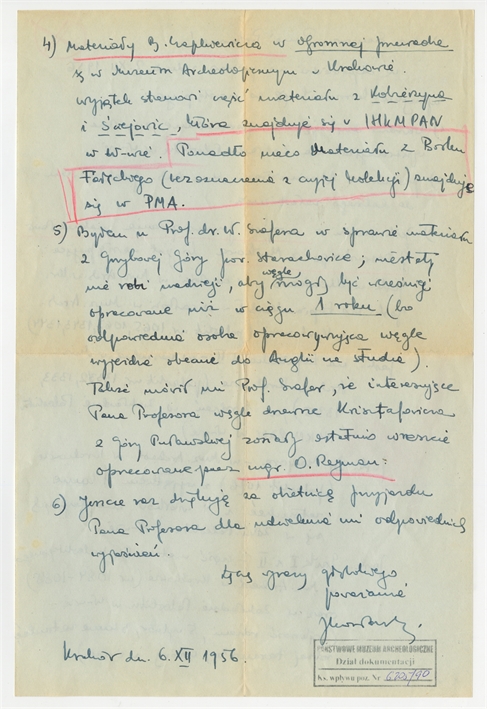 4) Materiały B. Czapkiewicza w ogromnej przewadze
są w Muzeum Archeologicznym w Krakowie.
wyjątek stanowi część materiału z Kobierzyna
i Ściejowic, która znajduje się w IHKM PAN
w W-wie. Ponadto nieco materiału z Borku
Fałęckiego (bez oznaczenia z czyjej kolekcji) znajduje
się w PMA.
5) Byłam u Prof. dr. W. Szafera w sprawie materiału
z Grzybowej Góry pow. Starachowice; niestety
nie robi nadzieji, aby węgle mogły być wcześniej
opracowane niż w ciągu 1 roku (bo
odpowiednia osoba opracowywująca węgle
wyjeżdża obecnie do Anglii na studia).
Także mówił mi Prof. Szafer, że interesujące
Pana Profesora węgle drzewne Krisztafowicza
z Góry Puławskiej zostały ostatnio wreszcie
opracowane przez mgr. O. Reyman.
6) Jeszcze raz dziękuję za obietnicę przyjazdu
Pana Profesora dla udzielenia mi odpowiednich
wyjaśnień.
Łączę wyrazy głębokiego
poważania
Kraków dn. 6. XII 1956.
PAŃSTWOWE MUZEUM ARCHEOLOGICZNE
Dział dokumentacji
Ks. wpływu poz. Nr